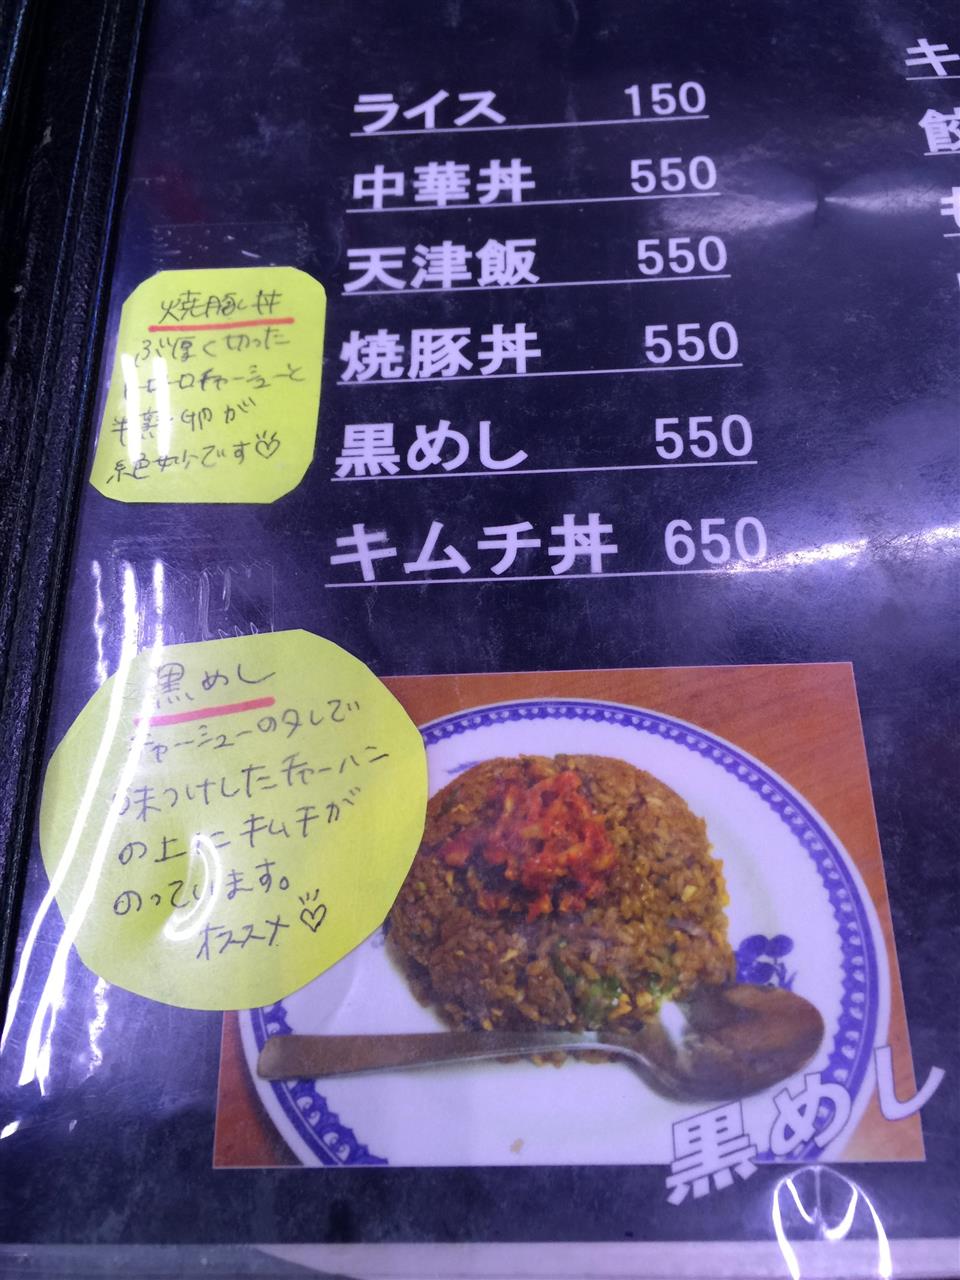 ライス 150
中華丼 550
天津飯 550
焼豚丼 550
黒めし 550
キムチ丼 650
キ
餃
焼豚丼
ぶ厚く切った
トロトロチャーシューと
半熟卵が
絶妙です♡
黒めし
チャーシューのタレで
味つけしたチャーハン
の上にキムチが
のっています。
オススメ♡
黒めし